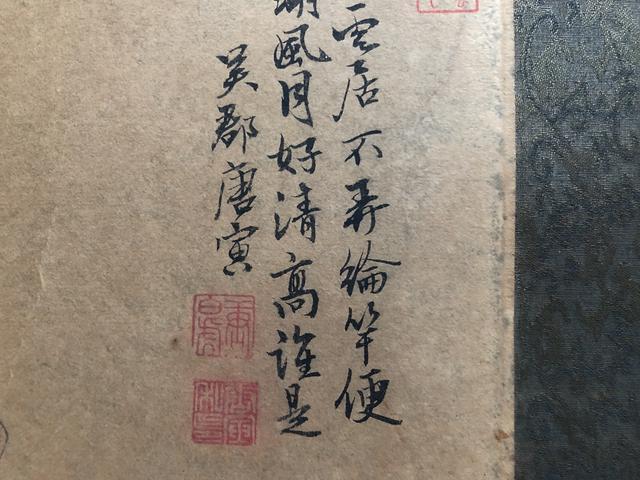 雲居不弄綸竿便
湖風月好清高誰是
吳郡唐寅
唐白虎